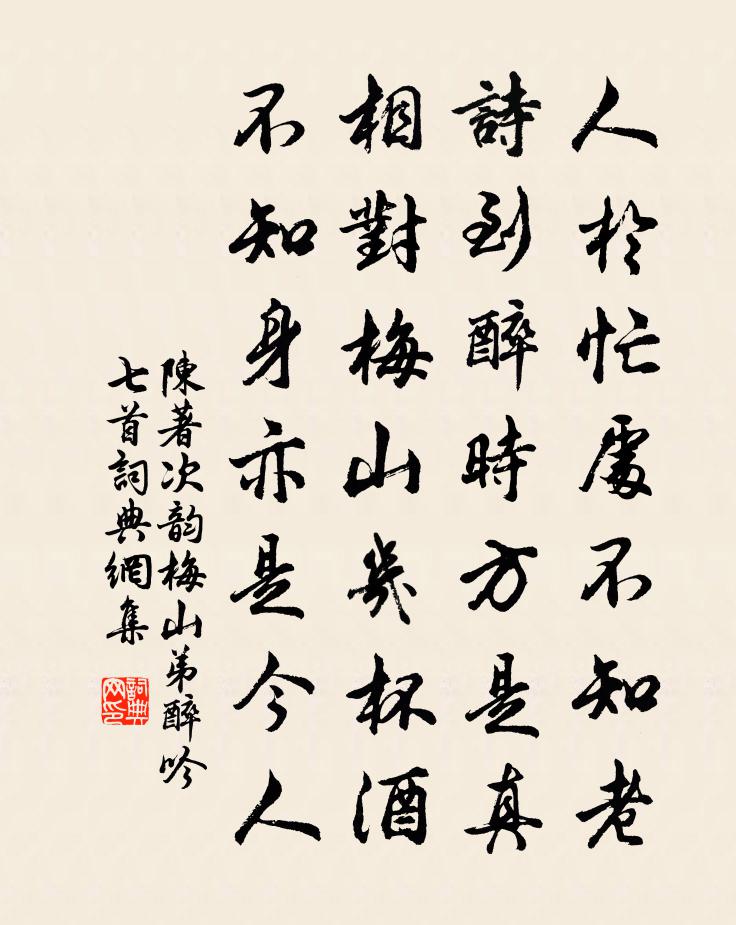 人於忙處不知老
詩到醉時方是真
相對梅山幾杯酒
不知身亦是今人
陳著次韵梅山弟醉吟
七首詞典網集
詞典
网印